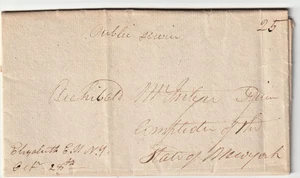 Public servi
25
Archibald McIntyre Esqr
Comptroller of the
State of Newyork
Elizabeth E.M N.Y.
Oct. 28th